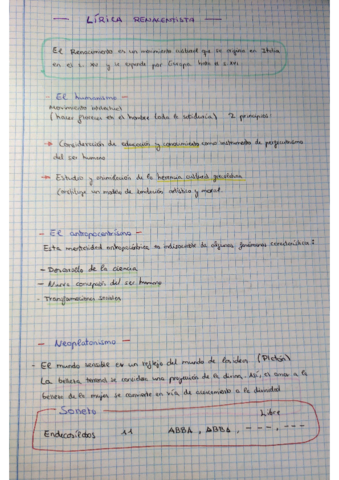 — LÍRICA RENACENTISTA —
El Renacimiento es un movimiento cultural que se origina en Italia
en el s. XIV y se expande por Europa hasta el s. XVI
- El humanismo -
Movimiento intelectual
(hacer florecer en el hombre toda la sabiduría) 2 principios:
→ Consideración de educación y conocimiento como instrumentos de perfeccionamiento
del ser humano
→ Estudio y asimilación de la herencia cultural grecolatina
constituye un modelo de imitación artístico y moral.
- El antropocentrismo -
Esta mentalidad antropocéntrica es indisociable de algunos fenómenos característicos:
- Desarrollo de la ciencia
- Nueva concepción del ser humano
- Transformaciones sociales
- Neoplatonismo -
- El mundo sensible es un reflejo del mundo de las ideas (Platón)
La belleza terrenal se considera una proyección de la divina. Así, el amor a la
belleza de la mujer se convierte en vía de acercamiento a la divinidad
— Soneto
Libre
Endecasílabos 11 ABBA, ABBA, - - -, - - -